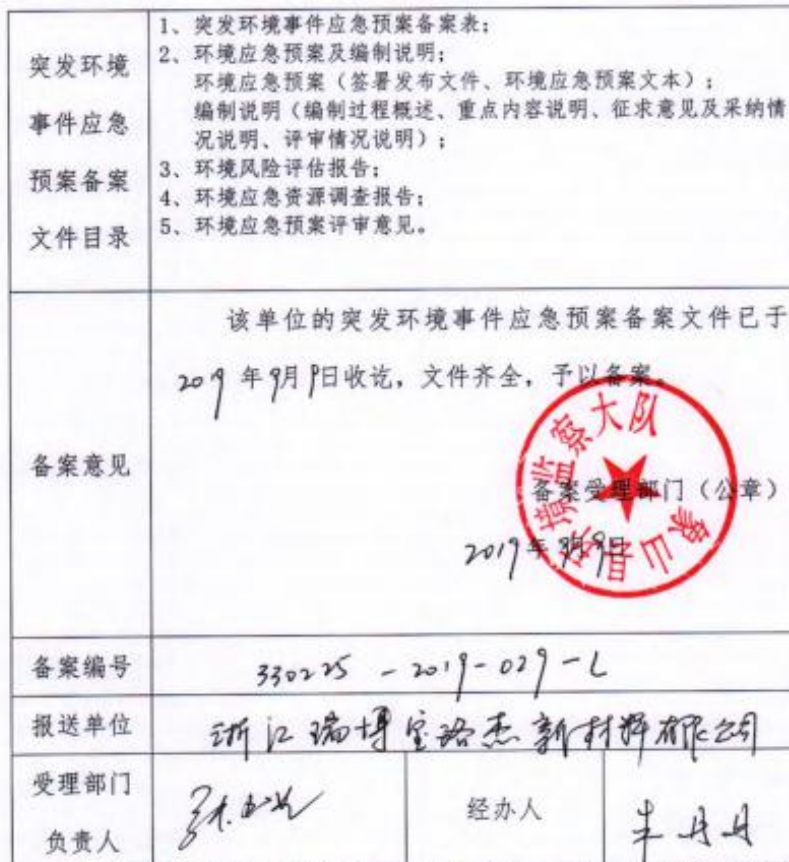 突发环境
事件应急
预案备案
文件目录
1、突发环境事件应急预案备案表；
2、环境应急预案及编制说明；
环境应急预案（签署发布文件、环境应急预案文本）；
编制说明（编制过程概述、重点内容说明、征求意见及采纳情
况说明、评审情况说明）；
3、环境风险评估报告；
4、环境应急资源调查报告；
5、环境应急预案评审意见。
备案意见
该单位的突发环境事件应急预案备案文件已于
2019年9月9日收讫，文件齐全，予以备案。
备案受理部门（公章）
2019年9月9日
象山县环境监察大队
备案编号
330225-2019-029-L
报送单位
浙江瑞博宝路杰新材料有限公司
受理部门
负责人
经办人